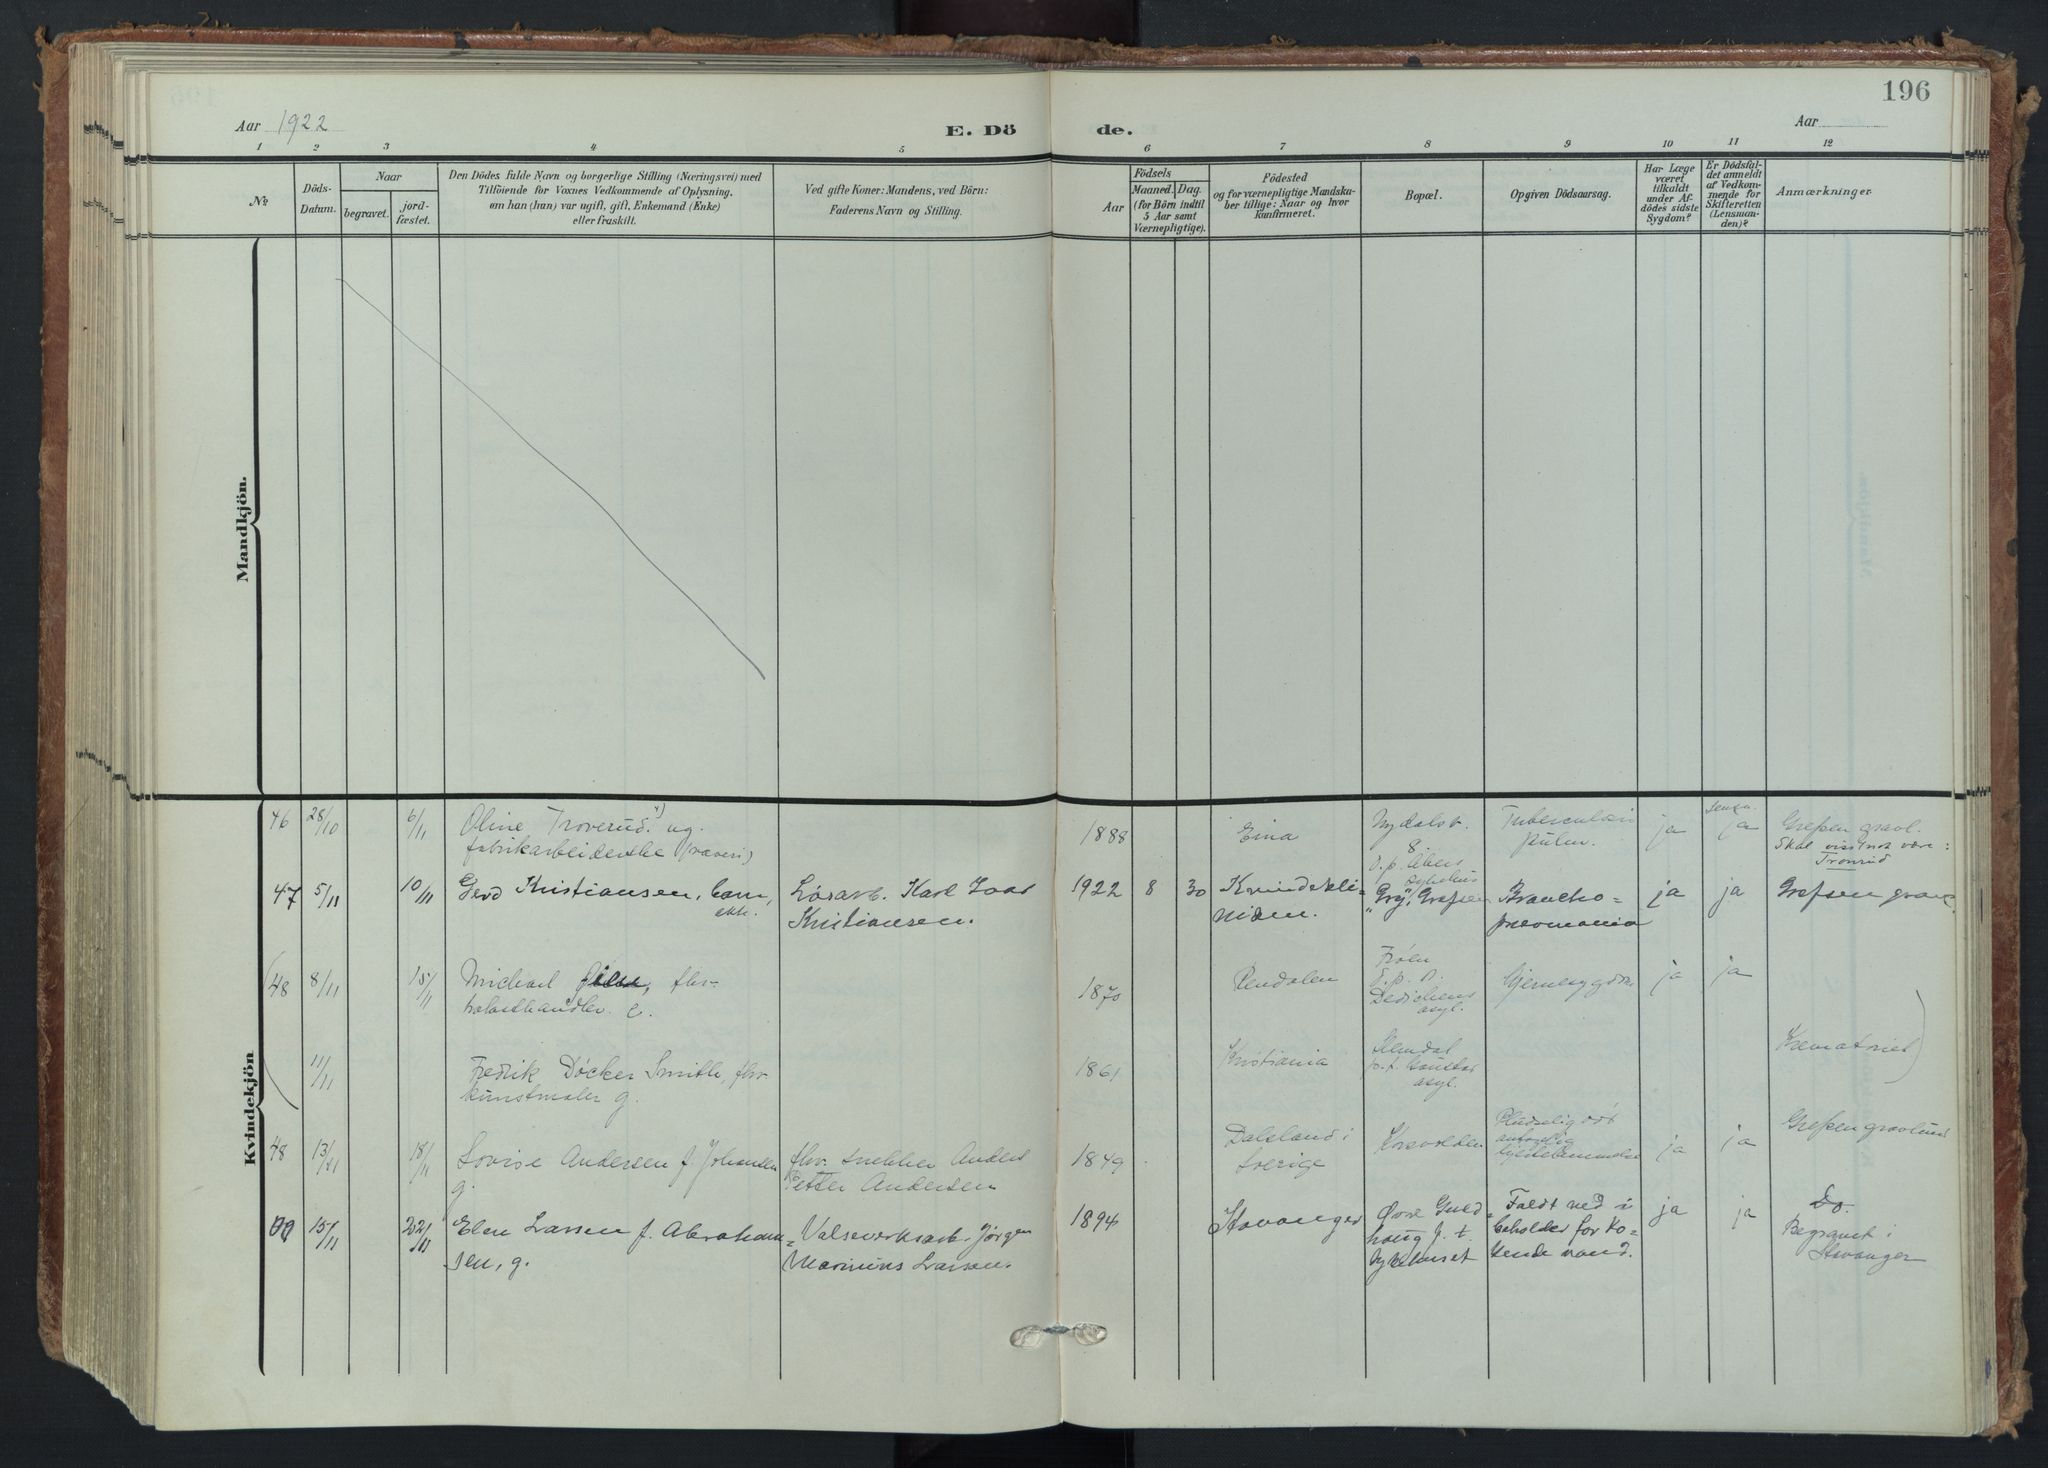 196
Aar 1922
E. Dö
de.
Aar
1 2 3 4 5 6 7 8 9 10 11 12
№
Döds-
Datum.
Naar
begravet.
jord-
fæstet.
Den Dödes fulde Navn og borgerlige Stilling (Næringsvei) med
Tilföiende for Voxnes Vedkommende af Oplysning,
om han (hun) var ugift, gift, Enkemand (Enke)
eller fraskilt.
Ved gifte Koner: Mandens, ved Börn:
Faderens Navn og Stilling.
Födsels
Aar
Maaned. Dag.
(for Börn indtil
5 Aar samt
Værnepligtige).
Födested
og for værnepligtige Mandska-
ber tillige: Naar og hvor
Konfirmeret.
Bopæl.
Opgiven Dödsaarsag.
Har Læge
været
tilkaldt
under Af-
dödes sidste
Sygdom?
Er Dödsfal-
det anmeldt
af Vedkom-
mende for
Skifteretten
(Lensman-
den)?
Anmærkninger
Mandkjön.
Kvindekjön
46 28/10 6/11 Oline Troverud. ug.
fabrikarbeiderske (væveri)
1888 Eina
Nydalsv.
8.
Tuberculosis
pulm.
ja ja
Grefsen gravl.
Skal visstnok være:
Tronrud
47 5/11 10/11 Gerd Kristiansen, barn,
ekte.
Løsarb. Karl
Kristiansen.
1922 8 30 Kvindekli-
niken.
"Gry", Grefsen
Broncho-
pneomonia
ja ja Grefsen grav.
(48 8/11 15/11 Michael fhv.
trælasthandler. e.
1870 Rendalen
Frøen
Dedichens
asyl.
ja ja
11/11 Fredrik Döcker Smith, fhv.
kunstmaler g.
1861 Kristiania
Slemdal
p.t. Gaustad
asyl.
Krematoriet)
48 13/11 18/11 Lovise Andersen f. Johansen
g.
fhv. snekker Anders
Petter Andersen
1849 Dalsland i
Sverige
Korsvolden
Pludselig død
antagelig
ja ja Grefsen gravlund
15/11 22/11 Elen Larsen f. Abraham-
sen, g.
Valseverksarb. Jørgen
Marinius Larsen.
1894 Stavanger
Øvre Guld-
houg p. t.
Sykehuset
Faldt ned i
beholder for ko-
kende vand.
ja ja Do.
Begravet i
Stavanger